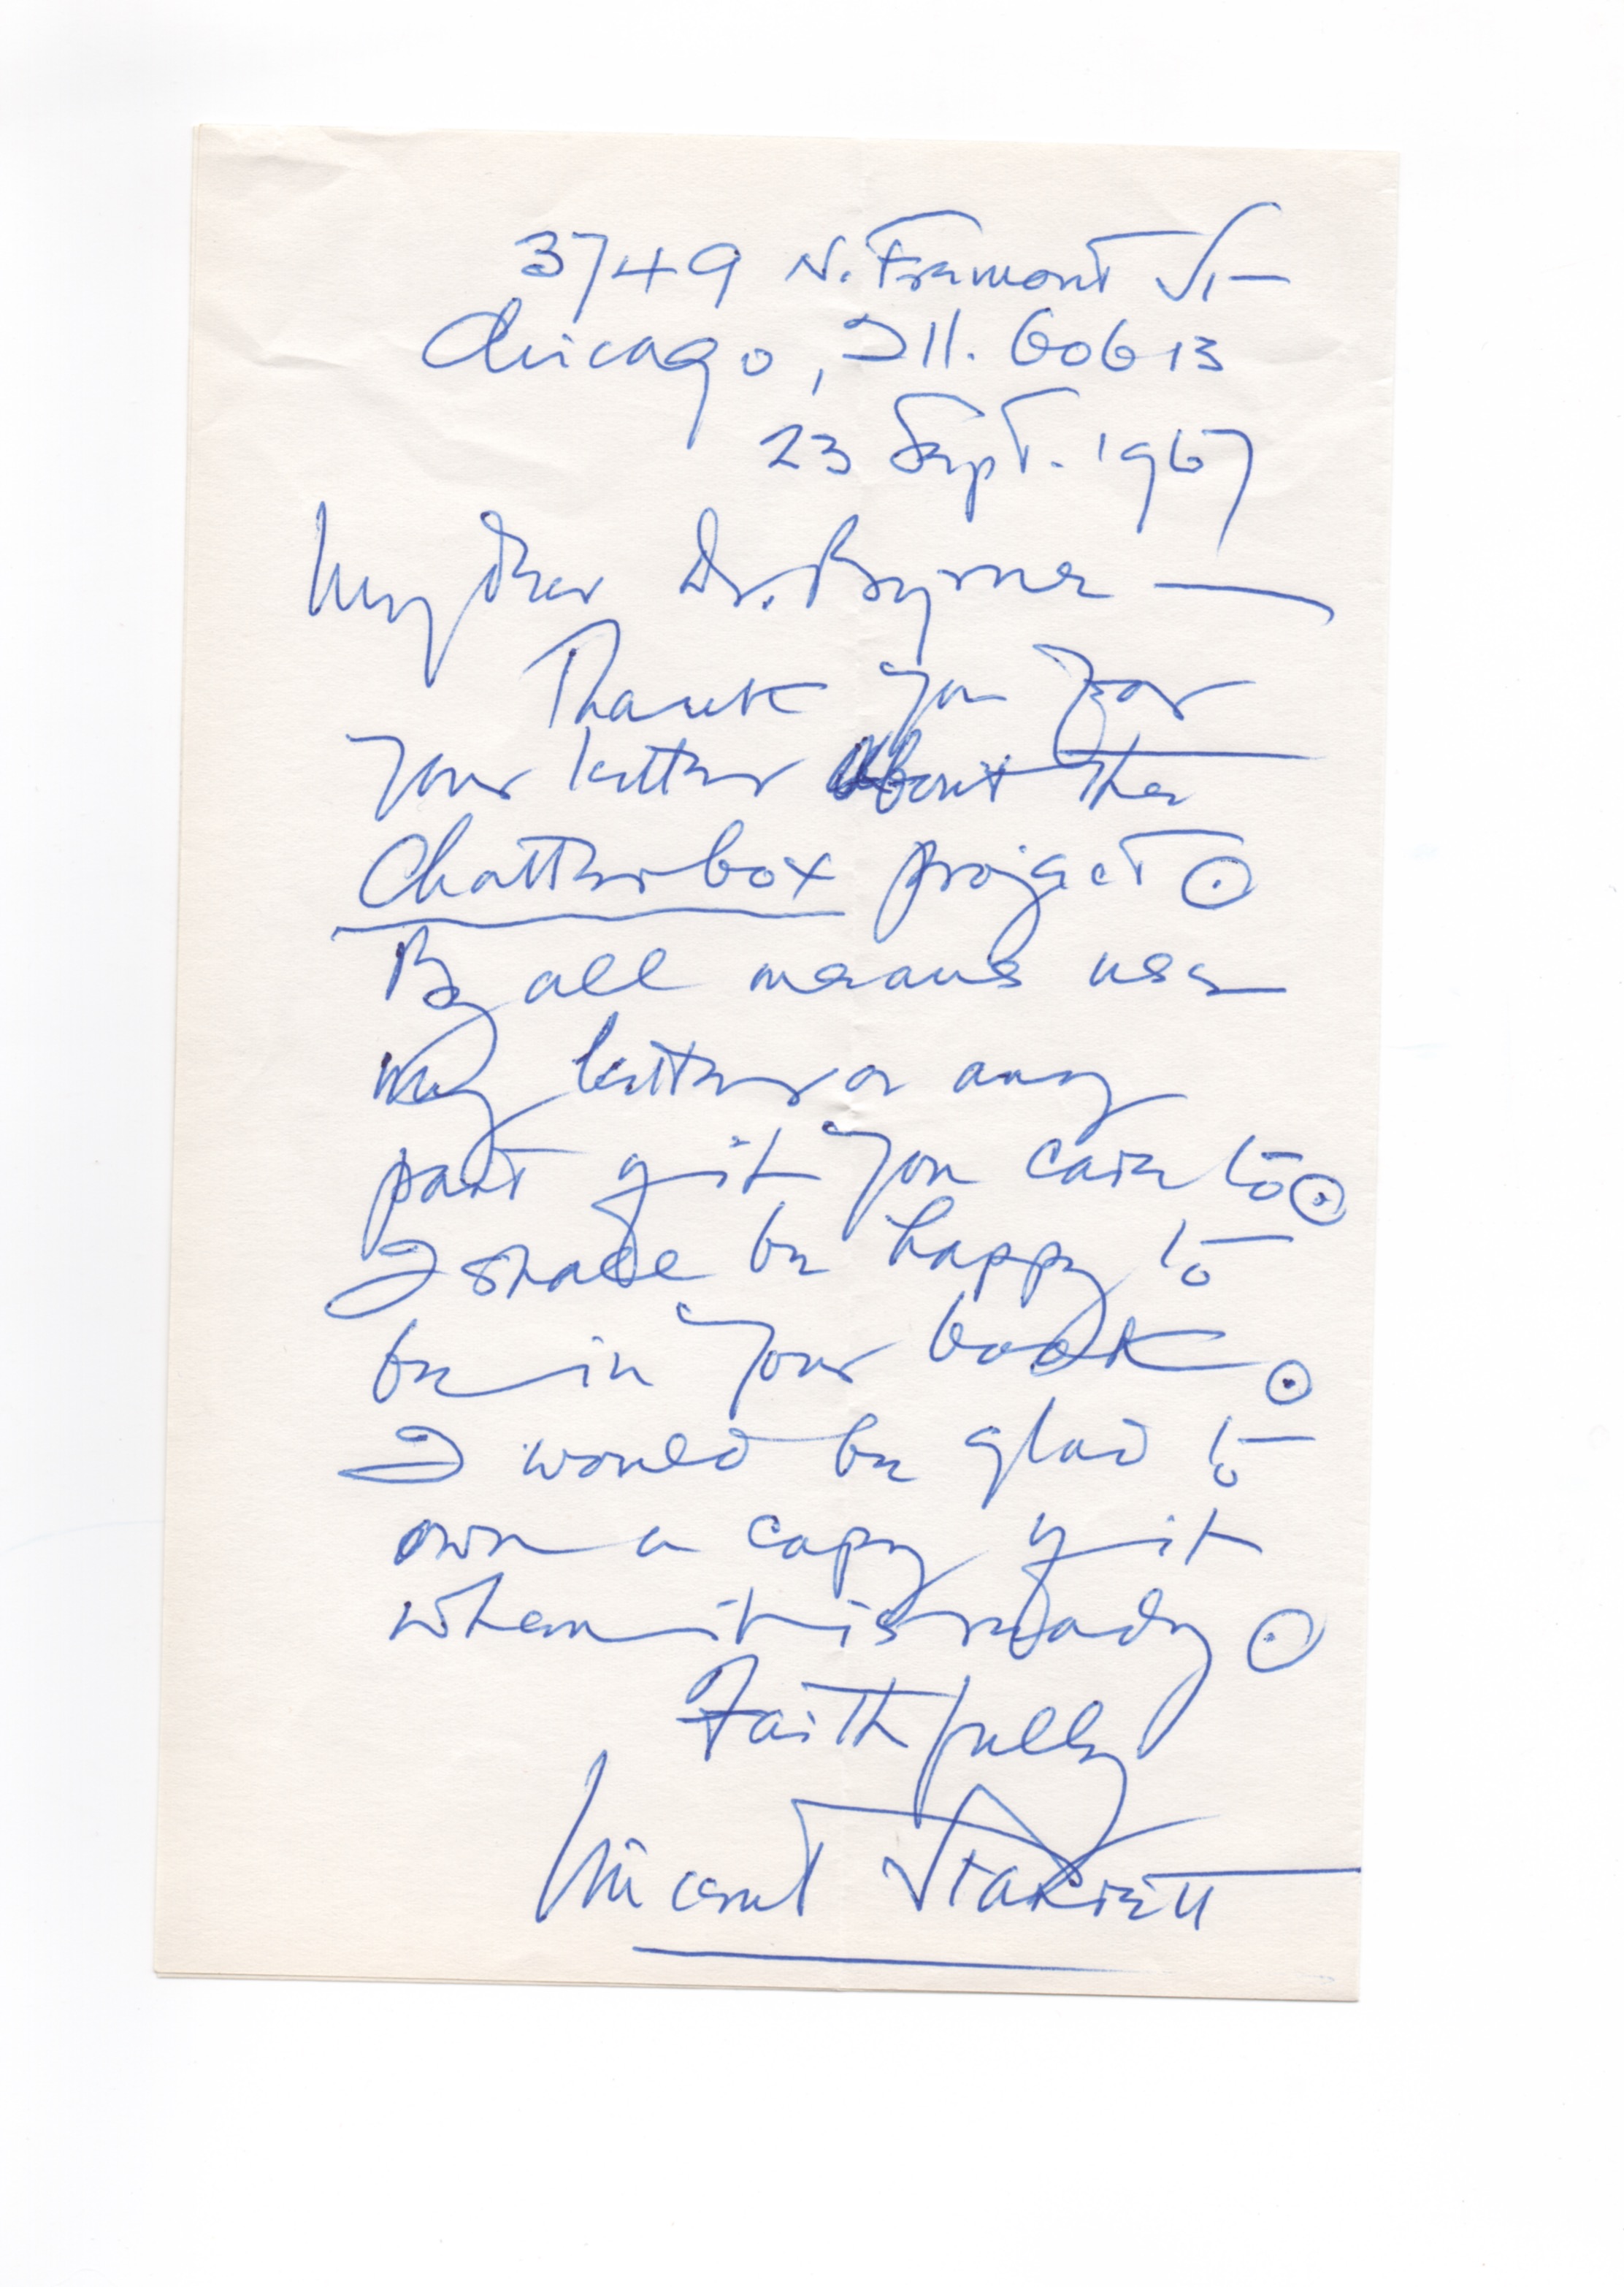 3749 N. Fremont St
Chicago, Ill. 60613
23 Sept. 1967
My dear Dr. Byrne —
Thank you for
your letter about the
Chatterbox project.
By all means use
my letter or any
part of it you care to.
I shall be happy to
be in your book.
I would be glad to
own a copy of it
when it is ready.
Faithfully
Vincent Starrett